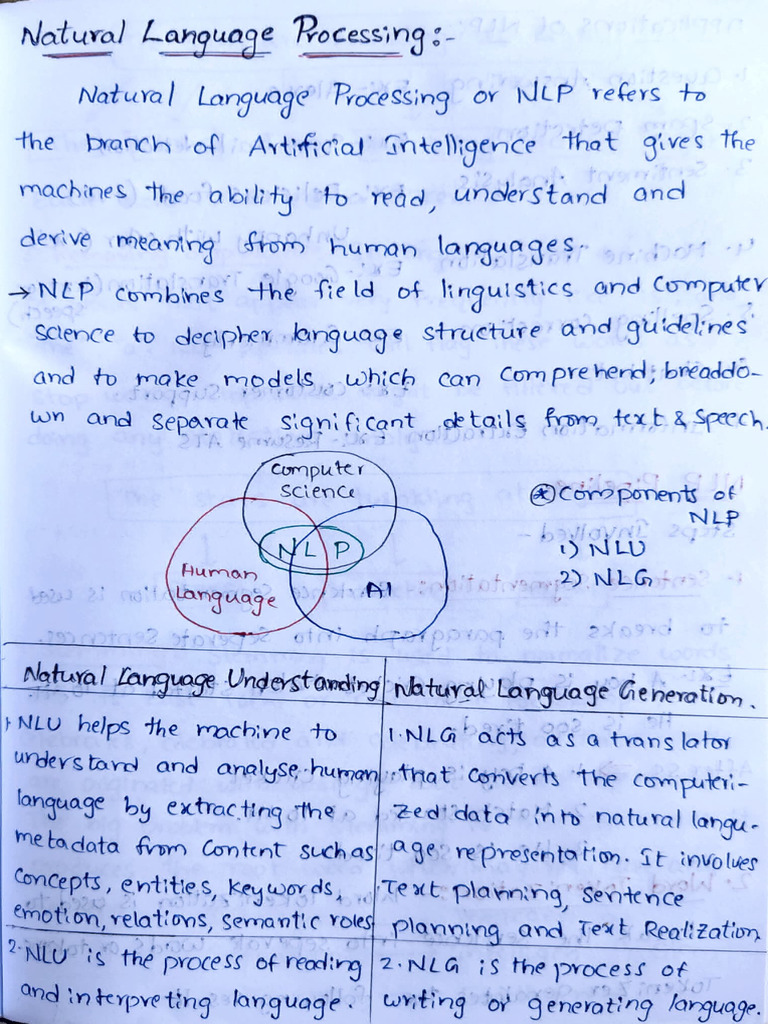 Natural Language Processing:-
Natural Language Processing or NLP refers to
the branch of Artificial Intelligence that gives the
machines the ability to read, understand and
derive meaning from human languages.
→ NLP combines the field of linguistics and computer
science to decipher language structure and guidelines
and to make models which can comprehend, breaddo-
wn and separate significant details from text & speech.
Computer
Science
NLP
Human
Language
AI
⊛ Components of
NLP
1) NLU
2) NLG
Natural Language Understanding
1 NLU helps the machine to
understand and analyse human
language by extracting the
metadata from content such as
concepts, entities, keywords,
emotion, relations, semantic roles
2. NLU is the process of reading
and interpreting language.
Natural Language Generation.
1. NLG acts as a translator
that converts the computeri-
zed data into natural langu-
age representation. It involves
Text planning, sentence
planning and Text Realization
2. NLG is the process of
writing or generating language.